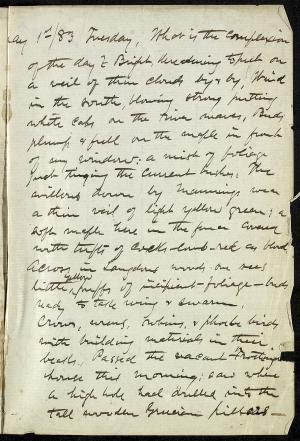 May 1st/83 Tuesday, What is the complexion
of the day? Bright, threatening to put on
a veil of thin clouds by & by, Wind
in the south, blowing strong putting
white caps on the river waves, Buds
plump & full on the maple in front
of my window: a mist of foliage
just tinging the currant bushes: The
willows down by Mannings wear
a thin veil of light yellow green; a
soft maple here in the
with tufts of cocks-comb-red as blood
Across in Langdons woods one sees
little yellow puffs of incipient-foliage-buds
ready to take wing & swarm.
Crows, wrens, robins, & phoebe birds
with building material in their
beaks. Passed the vacant Frothingham
house this morning; saw where
a high hole had drilled into the
tall wooden Grecian pillars